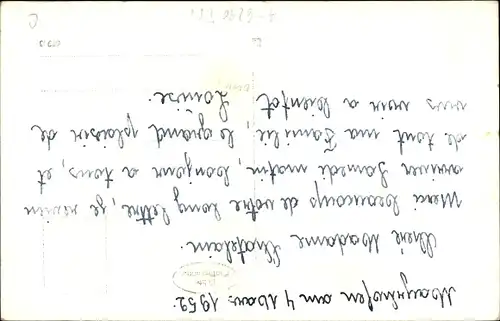 Mayrhofen am 4 Mars 1952.
Chère Madame Chatelain.
Merci beaucoups de votre long lettre, je
arriver Samedi matin, bonjour a tous, et
de tout ma Familie, le grand plaisir de
vous voir a bientot
Louise.